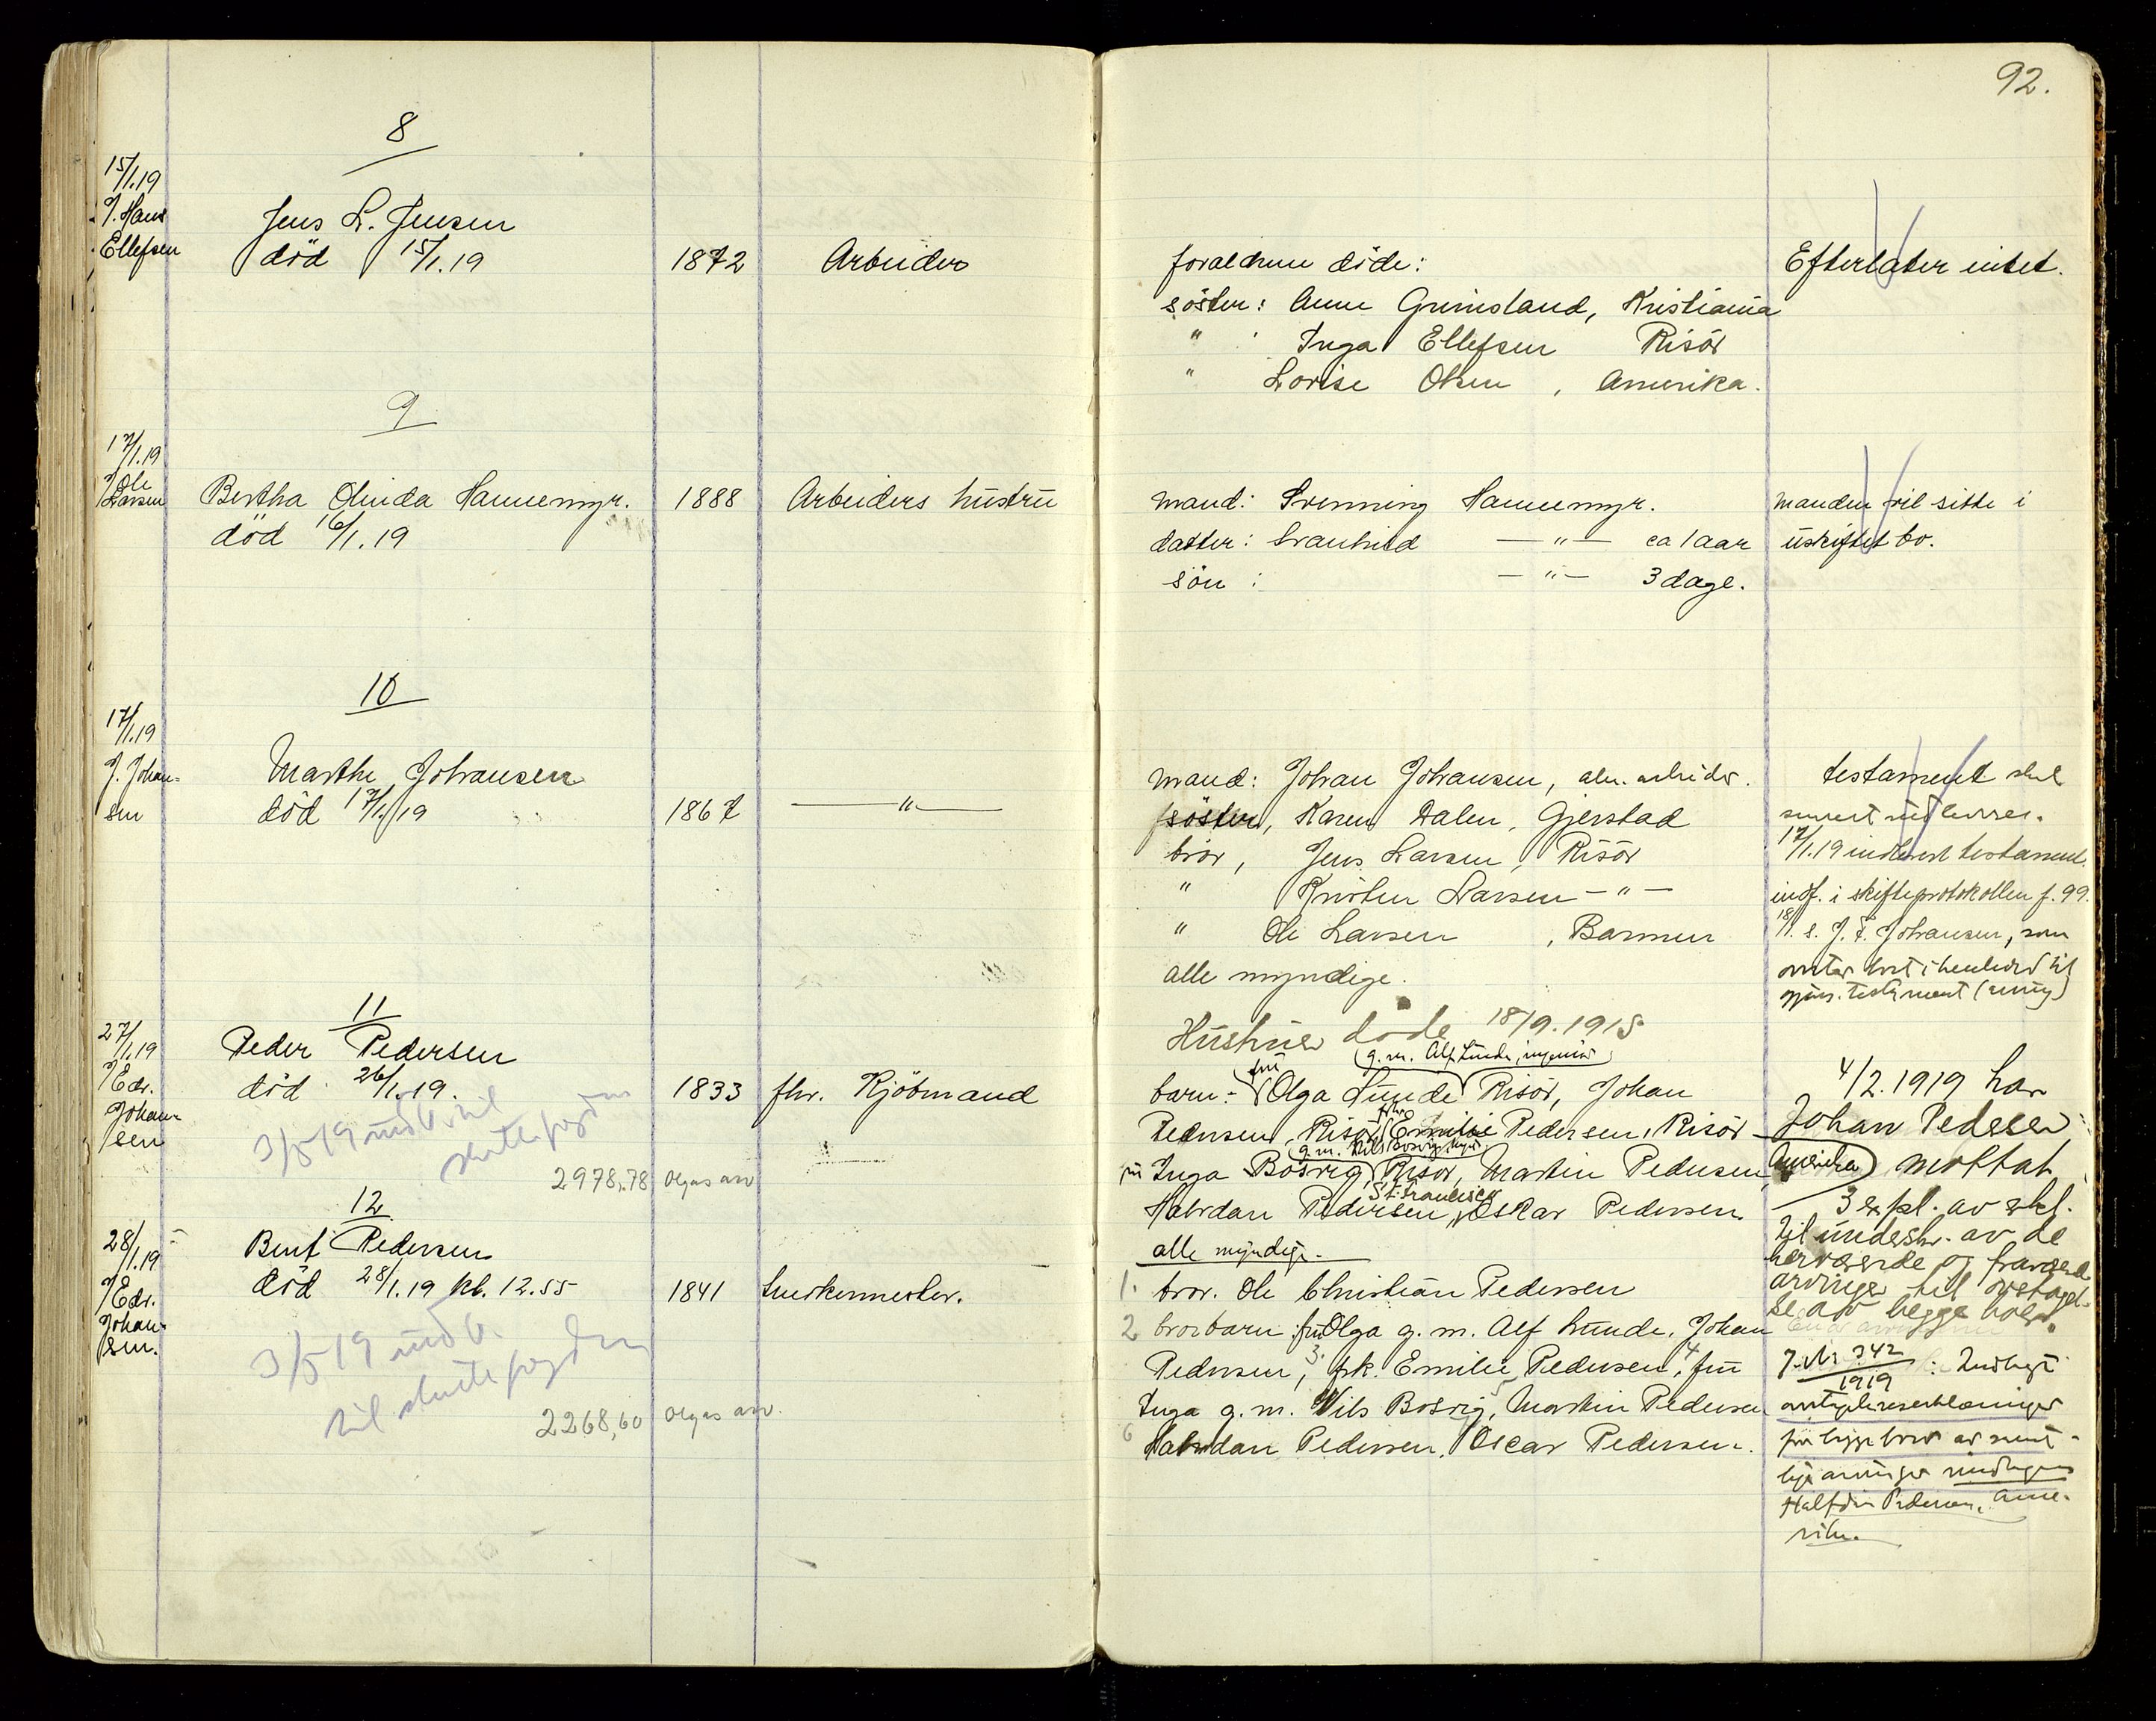 92.
8
15/1.19
J. Hans
Ellefsen
Jens L. Jensen
död 15/1.19
1872
Arbeider
foraldrene döde:
söster: Anne Grimsland, Kristiania
" Inga Ellefsen Risör
" Lovise Olsen, Amerika.
Efterlater intet.
9
17/1.19
J Ole
Larsen
Bertha Olinda Hannemyr.
död 16/1.19
1888
Arbeiders hustru
mand: Svenning Hannemyr.
datter: Svanhild —"— ca 1 aar
sön : —"— 3 dage.
manden vil sitte i
uskiftet bo.
10
17/1.19
J. Johan-
sen
Marthe Johansen
död 17/1.19
1867
—"—
mand: Johan Johansen, alm. arbeider.
söster, Karen Dalen, Gjerstad
bror, Jens Larsen, Risör
" Kristen Larsen —"—
" Ole Larsen, Barmen
alle myndige.
testament skal
17/1.19 indlevert testament.
indf. i skifteprotokollen f. 99.
18/1. s. J. F. Johansen, som
testament
11
27/1.19
J Edv.
Johan-
sen
Peder Pedersen
död 26/1.19.
3/5 19 indb. til
skattefogden
2978,78 Olgas arv
1833
fhv. Kjöbmand
Hustruen döde 18/9.1915
(g. m. Alf Lunde, ingeniör)
barn:- fru Olga Lunde Risör, Johan
Pedersen, Risör, frk. Emilie Pedersen, Risör
(g. m. Nils Bosvig
fru Inga Bosvig, Risör, Martin Pedersen,
St. Francisco
Halvdan Pedersen, Oskar Pedersen
alle myndige.
4/2.1919 har
Johan Pedersen
(Amerika) mottat
3 expl. av skf.
til underskr. av de
herværende og fraværende
arvinger til overtagel-
se av begge boer.
12
28/1.19
J Edv.
Johan-
sen.
Bent Pedersen
död 28/1.19 kl. 12.55
3/5 19 indb.
til skattefogden
2268,60 Olgas arv.
1841
Snekkermester.
1. bror. Ole Christian Pedersen
2 brorbarn: fru Olga g. m. Alf Lunde, Johan
Pedersen, 3. frk. Emilie Pedersen, 4 fru
Inga g. m. Nils Bosvig, 5 Martin Pedersen
6 Halvdan Pedersen, Oscar Pedersen.
J. Nr 342/1919: Indlagt
for begge boer av samt-
lige arvinger undtagen
Halfdan Pedersen, Ame-
rika.